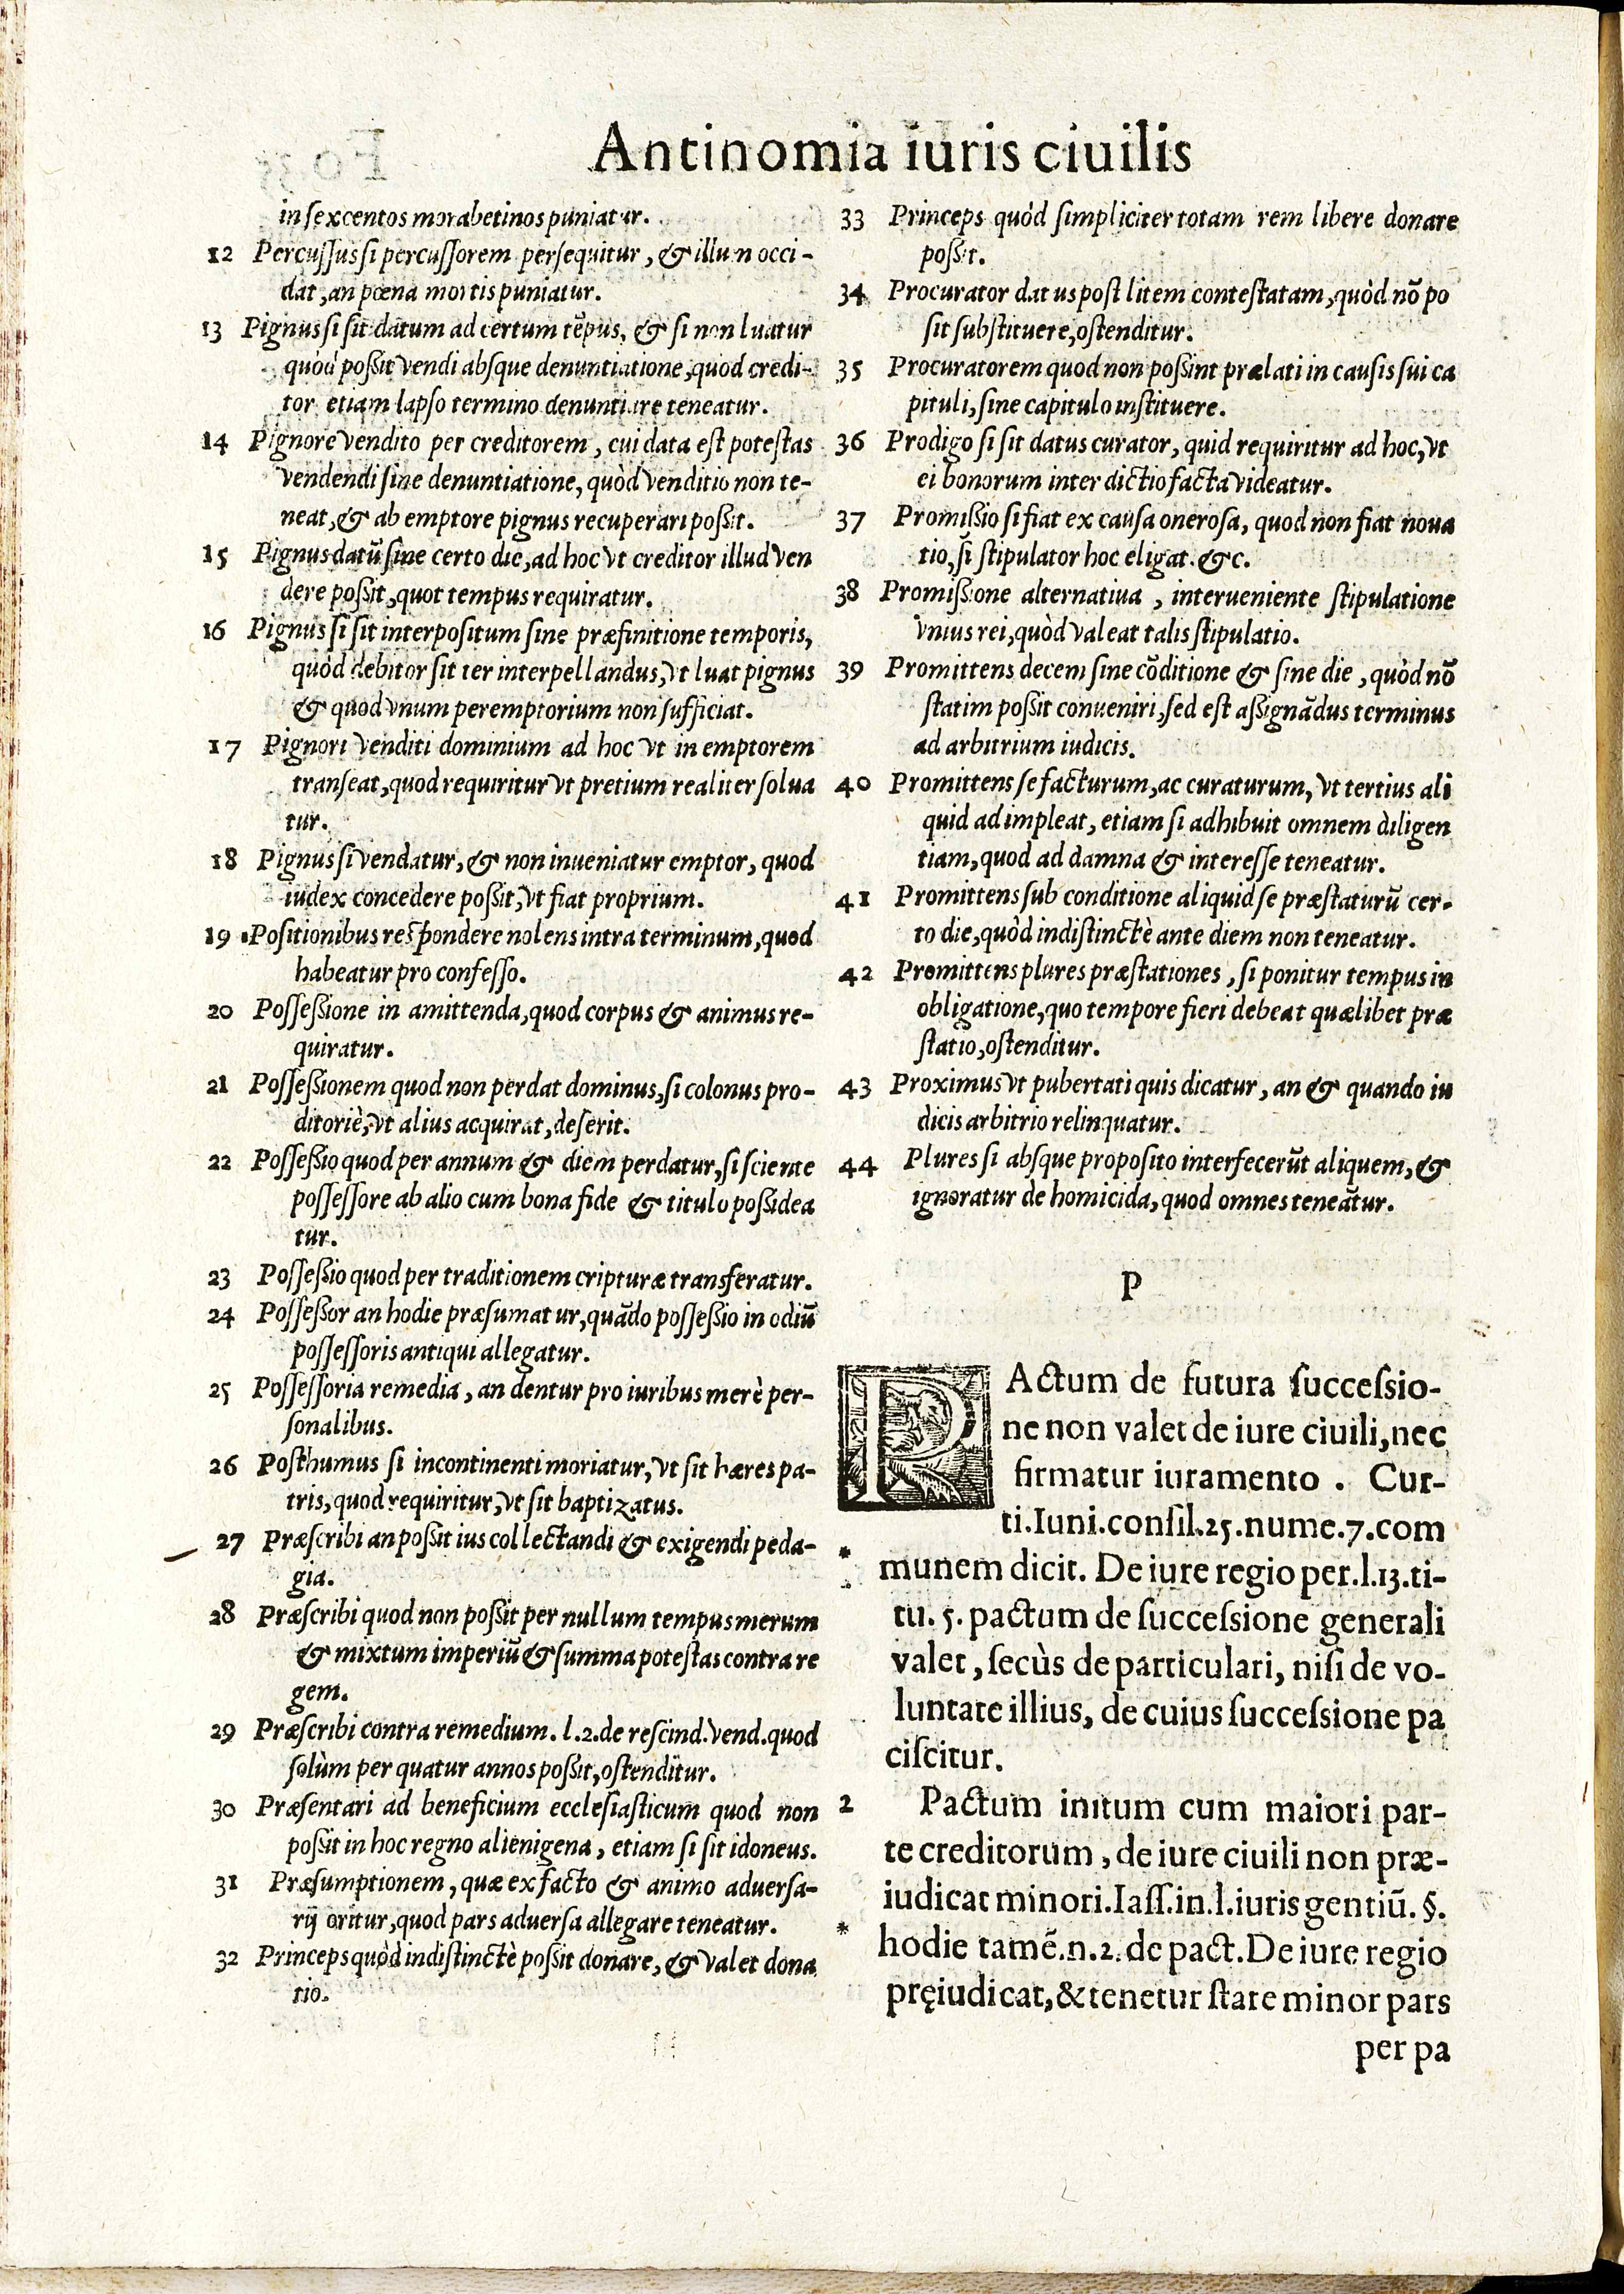 Antinomia iuris ciuilis
in sexcentos morabetinos puniatur.
12 Percussus si percussorem persequitur, & illun occi-
dat, an pœna mortis puniatur.
13 Pignus si sit datum ad certum tēpus, & si non luatur
quòd possit vendi absque denuntiatione, quod credi-
tor etiam lapso termino denuntiare teneatur.
14 Pignore vendito per creditorem, cui data est potestas
vendendi sine denuntiatione, quòd venditio non te-
neat, & ab emptore pignus recuperari possit.
15 Pignus datū sine certo die, ad hoc vt creditor illud ven
dere possit, quot tempus requiratur.
16 Pignus si sit interpositum sine præfinitione temporis,
quòd debitor sit ter interpellandus, vt luat pignus
& quod vnum peremptorium non sufficiat.
17 Pignori venditi dominium ad hoc vt in emptorem
transeat, quod requiritur vt pretium realiter solua
tur.
18 Pignus si vendatur, & non inueniatur emptor, quod
iudex concedere possit, vt fiat proprium.
19 Positionibus respondere nolens intra terminum, quod
habeatur pro confesso.
20 Possessione in amittenda, quod corpus & animus re-
quiratur.
21 Possessionem quod non perdat dominus, si colonus pro-
ditoriè, vt alius acquirat, deserit.
22 Possessio quod per annum & diem perdatur, si sciente
possessore ab alio cum bona fide & titulo possidea
tur.
23 Possessio quod per traditionem cripturæ transferatur.
24 Possessor an hodie præsumatur, quādo possessio in odiū
possessoris antiqui allegatur.
25 Possessoria remedia, an dentur pro iuribus merè per-
sonalibus.
26 Posthumus si incontinenti moriatur, vt sit hæres pa-
tris, quod requiritur, vt sit baptizatus.
27 Præscribi an possit ius collectandi & exigendi peda-
gia.
28 Præscribi quod non possit per nullum tempus merum
& mixtum imperiū & summa potestas contra re
gem.
29 Præscribi contra remedium. l.2. de rescind. vend. quod
solùm per quatur annos possit, ostenditur.
30 Præsentari ad beneficium ecclesiasticum quod non
possit in hoc regno alienigena, etiam si sit idoneus.
31 Præsumptionem, quæ ex facto & animo aduersa-
rij oritur, quod pars aduersa allegare teneatur.
32 Princeps quòd indistinctè possit donare, & valet dona
tio.
33 Princeps quòd simpliciter totam rem libere donare
possit.
34 Procurator datus post litem contestatam, quòd nō po
sit substituere, ostenditur.
35 Procuratorem quod non possint prælati in causis sui ca
pituli, sine capitulo instituere.
36 Prodigo si sit datus curator, quid requiritur ad hoc, vt
ei bonorum inter dictio facta videatur.
37 Promissio si fiat ex causa onerosa, quod non fiat noua
tio, si stipulator hoc eligat. &c.
38 Promissione alternatiua, interueniente stipulatione
vnius rei, quòd valeat talis stipulatio.
39 Promittens decem sine cōditione & sine die, quòd nō
statim possit conueniri, sed est assignādus terminus
ad arbitrium iudicis.
40 Promittens se facturum, ac curaturum, vt tertius ali
quid adimpleat, etiam si adhibuit omnem diligen
tiam, quod ad damna & interesse teneatur.
41 Promittens sub conditione aliquid se præstaturū cer-
to die, quòd indistinctè ante diem non teneatur.
42 Promittens plures præstationes, si ponitur tempus in
obligatione, quo tempore fieri debeat quælibet præ
statio, ostenditur.
43 Proximus vt pubertati quis dicatur, an & quando iu
dicis arbitrio relinquatur.
44 Plures si absque proposito interfecerūt aliquem, &
ignoratur de homicida, quod omnes teneātur.
P
PActum de futura successio-
ne non valet de iure ciuili, nec
firmatur iuramento. Cur-
ti. Iuni. consil. 25. nume. 7. com
* munem dicit. De iure regio per. l. 13. ti-
tu. 5. pactum de successione generali
valet, secùs de particulari, nisi de vo-
luntate illius, de cuius successione pa
ciscitur.
2 Pactum initum cum maiori par-
te creditorum, de iure ciuili non præ-
iudicat minori. Iass. in. l. iuris gentiū. §.
* hodie tamē. n. 2. de pact. De iure regio
pręiudicat, & tenetur stare minor pars
per pa